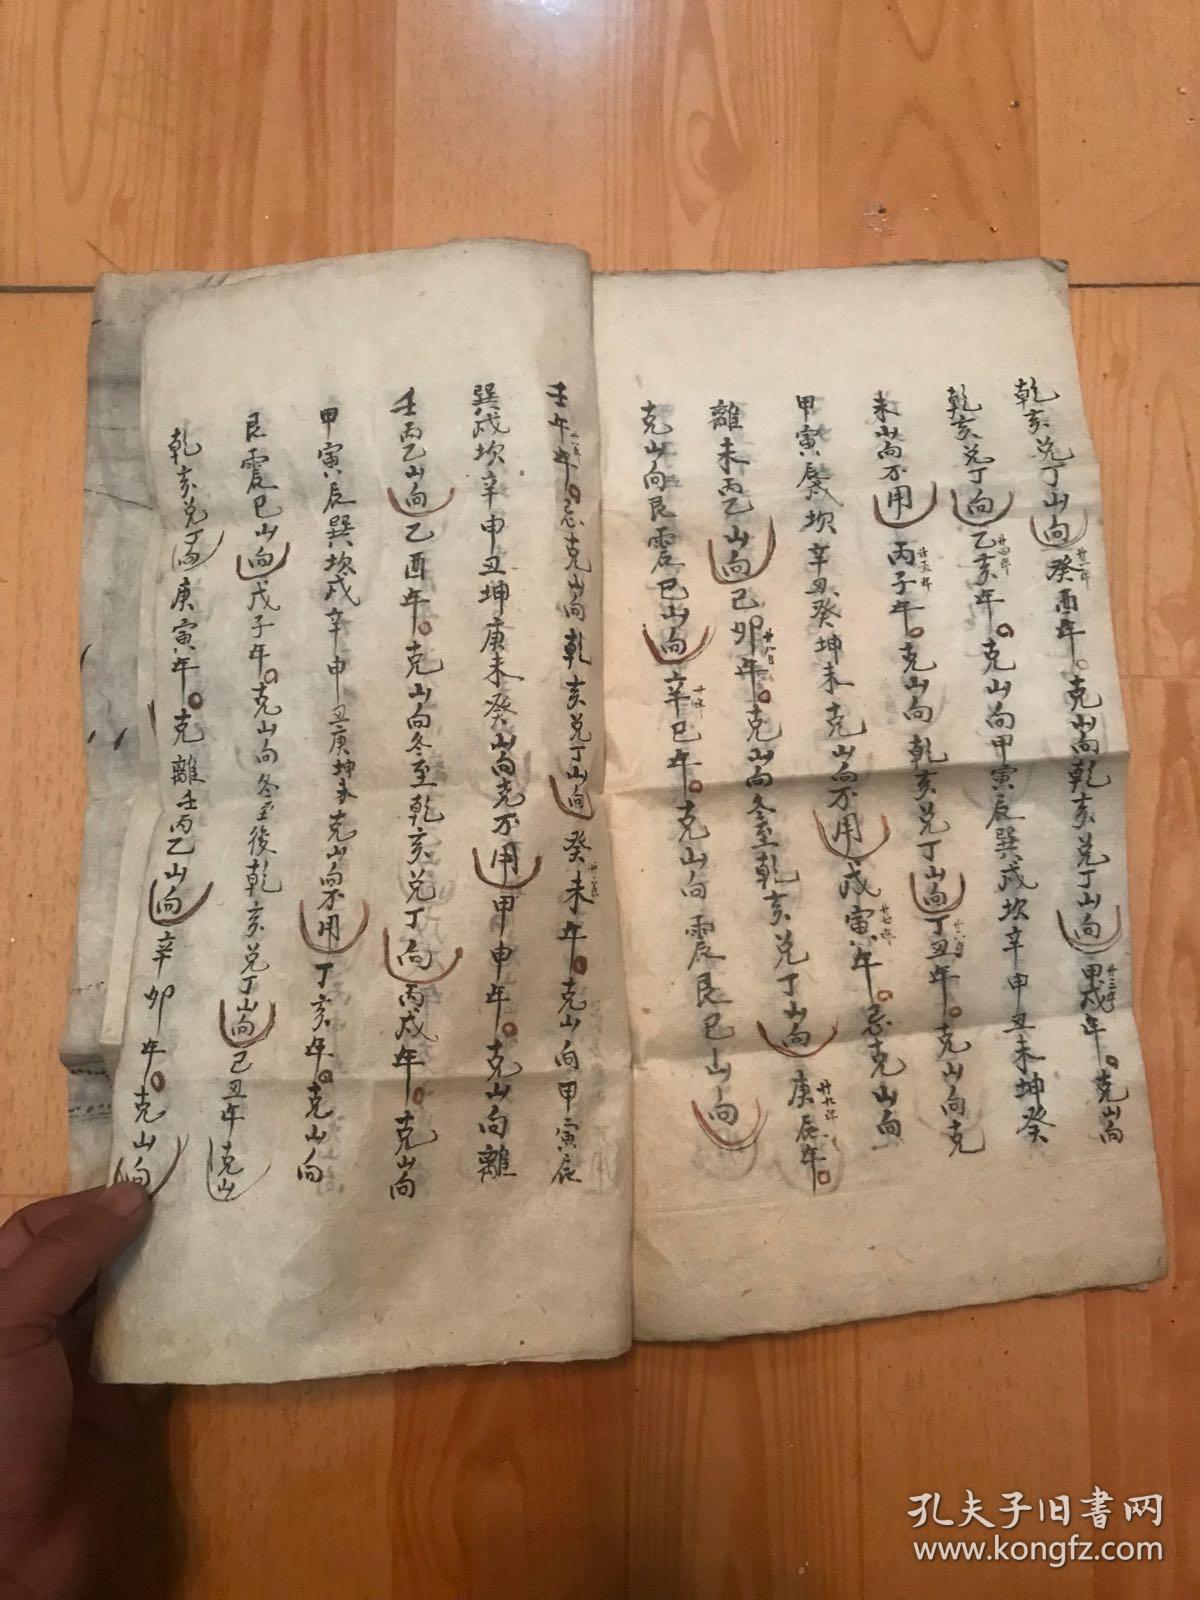 乾亥兑丁山向癸酉年克山向乾亥兑丁山向甲戌年克山向
乾亥兑丁向乙亥年克山向甲寅辰巽戌坎辛申丑未坤癸
未山向不用丙子年克山向乾亥兑丁山向丁丑年克山向克
甲寅辰戌坎辛丑癸坤未克山向不用戊寅年忌克山向
離未丙乙山向己卯年克山向冬至乾亥兑丁山向庚辰年
克山向艮震巳山向辛巳年克山向震艮巳山向
壬午年忌克山向乾亥兑丁山向癸未年克山向甲寅辰
巽戌坎辛申丑坤庚未癸山向克不用甲申年克山向離
壬丙乙山向乙酉年克山向冬至乾亥兑丁向丙戌年克山向
甲寅辰巽坎戌辛申丑庚坤未克山向不用丁亥年克山向
艮震巳山向戊子年克山向冬至後乾亥兑丁山向己丑年克山
乾亥兑丁向庚寅年克離壬丙乙山向辛卯年克山向
孔夫子旧书网
www.kongfz.com